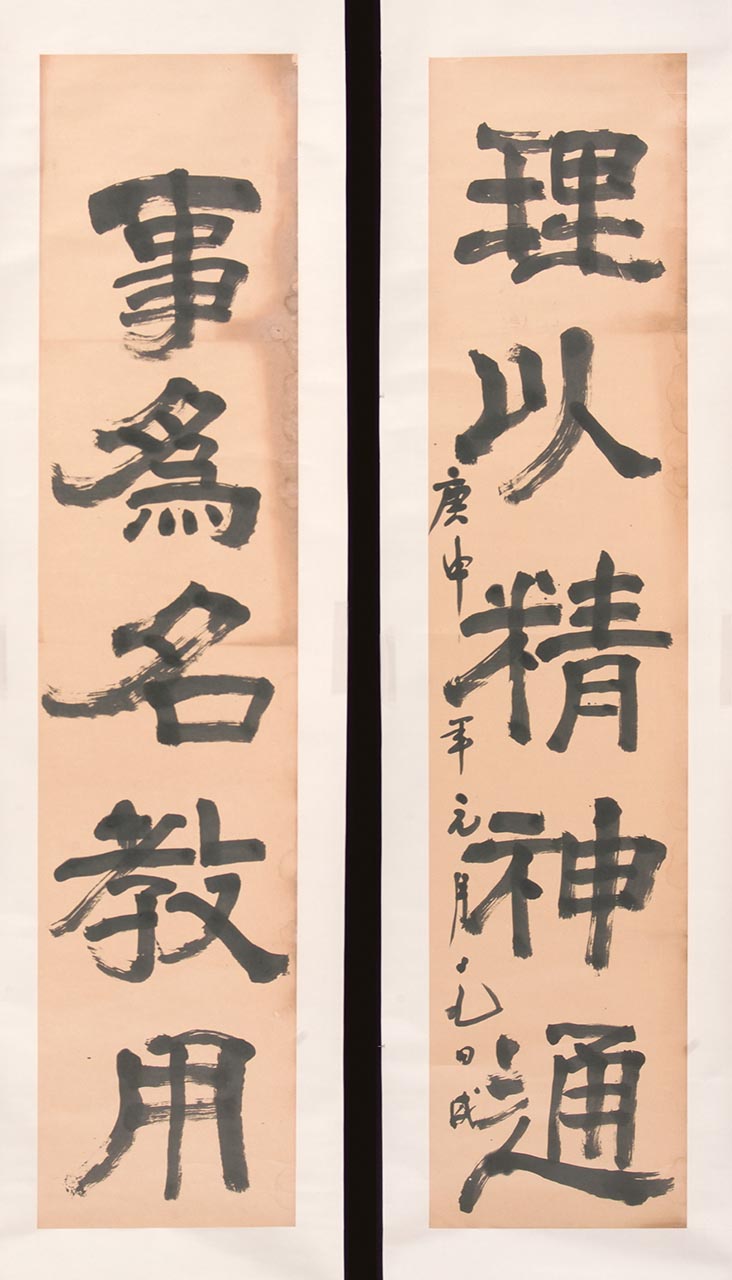 理以精神通
庚申年元月十九日成
事為名教用